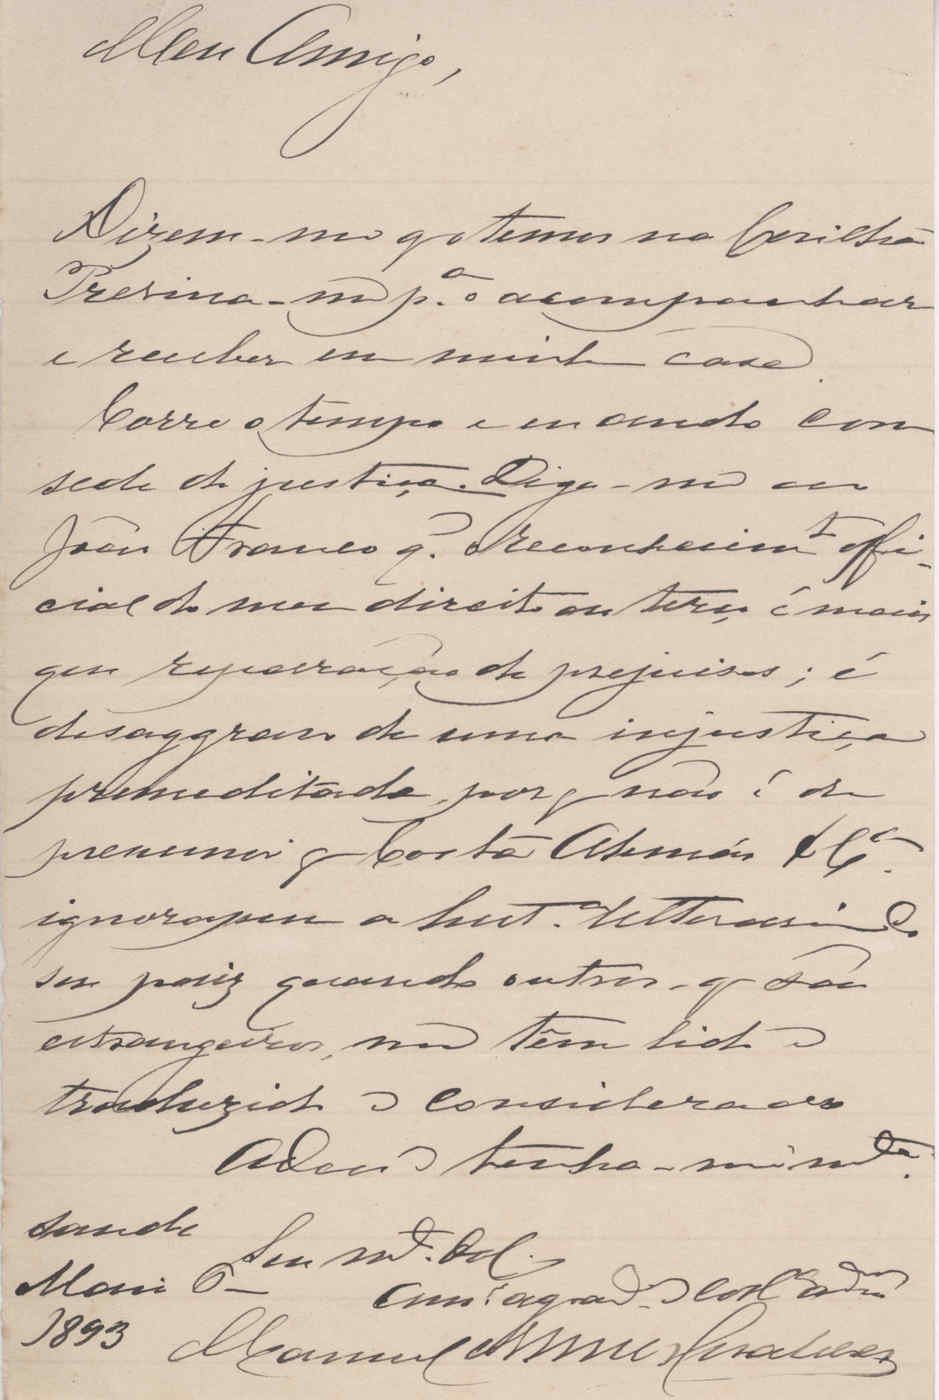 Meu Amigo,
Dizem-me q o temos na Covilhã
Previna-me p.ª o acompanhar
e receber em minha casa.
Corre o tempo e eu ando com
sede de justiça. Diga-me ao
João Franco q. o reconhecimt offi-
cial do meu direito ao terço é mais
que reparação de prejuisos; é
desaggravo de uma injustiça
premeditada, porq não é de
presumir q Costa Alemão & Cª.
ignorassem a litteraria do
seu paiz quando outros, q são
estrangeiros, me têm lido e
traduzido e considerado
Adeus e tenha-me em mtª.
saude
Seu mt. Ded.
Maio 6-
am.º agrad. e col.
1893
Manuel